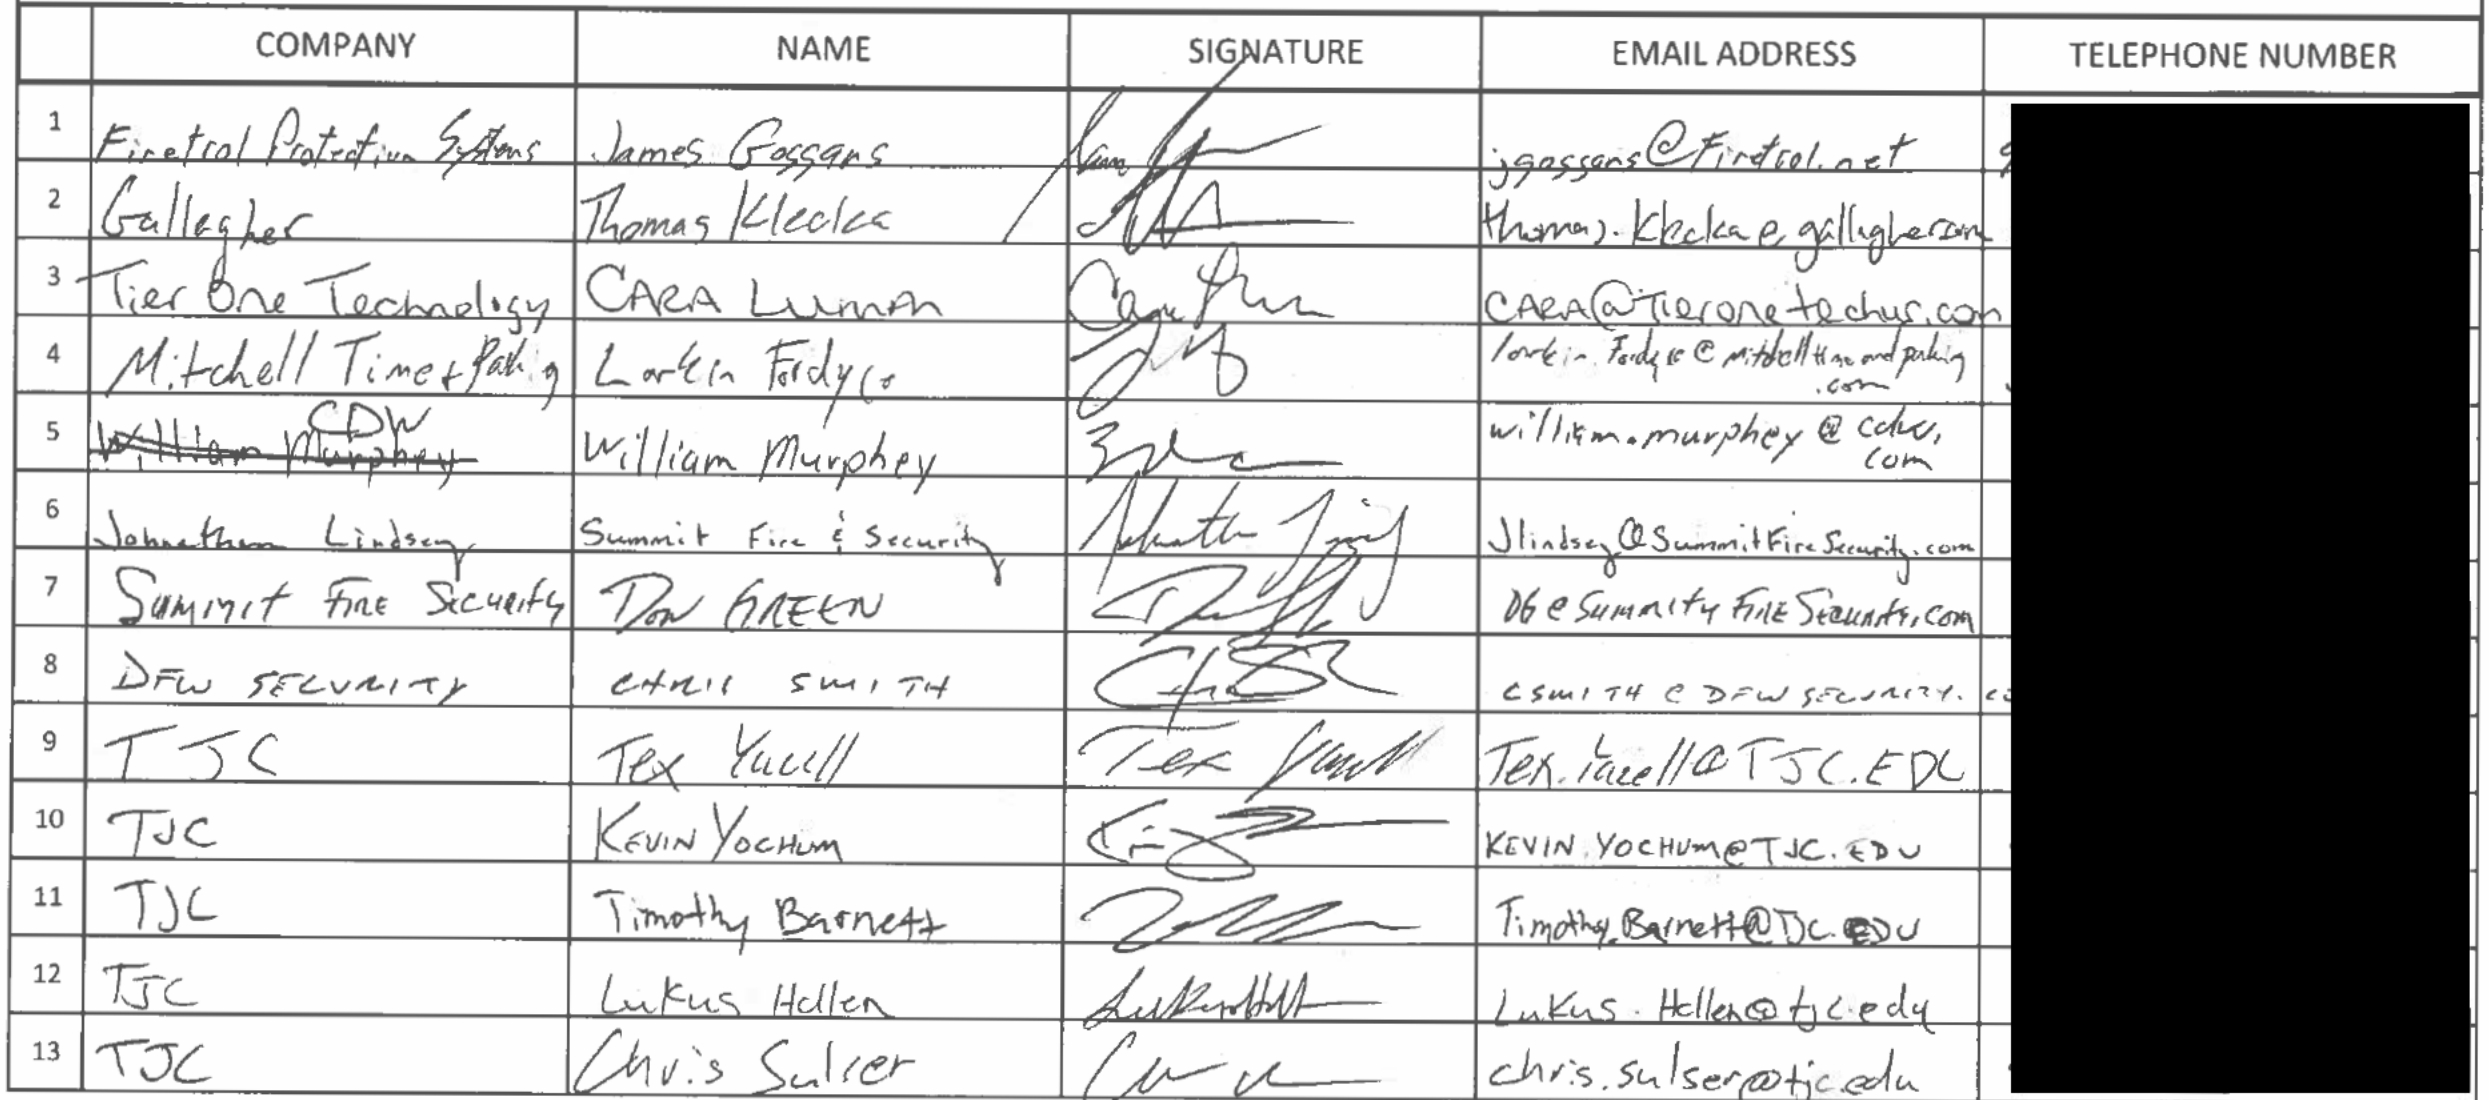 COMPANY NAME SIGNATURE EMAIL ADDRESS TELEPHONE NUMBER
1 Firetrol Protection Systems James Gossans jgossans@Firetrol.net
2 Gallagher Thomas Klecka thomas.klecka@gallagher.com
3 Tier One Technology CARA Luman CARA@Tieronetechus.com
4 Mitchell Time + Parking Larkin Fordyce larkin.Fordyce@mitchelltimeandparking
.com
5 CDW William Murphey william.murphey@cdw.
com
6 Johnathan Lindsey Summit Fire & Security Jlindsey@SummitFireSecurity.com
7 Summit FIRE SECURITY DON GREEN DG@SummitYFIRESECURITY.com
8 DFW SECURITY CHRIS SMITH CSMITH@DFWSECURITY.
9 TJC Tex Yacell Tex.Yacell@TJC.EDU
10 TJC KEVIN YOCHUM KEVIN.YOCHUM@TJC.EDU
11 TJC Timothy Barnett Timothy.Barnett@TJC.EDU
12 TJC Lukus Hollen Lukus.Hollen@tjc.edu
13 TJC Chris Sulser chris.sulser@tjc.edu